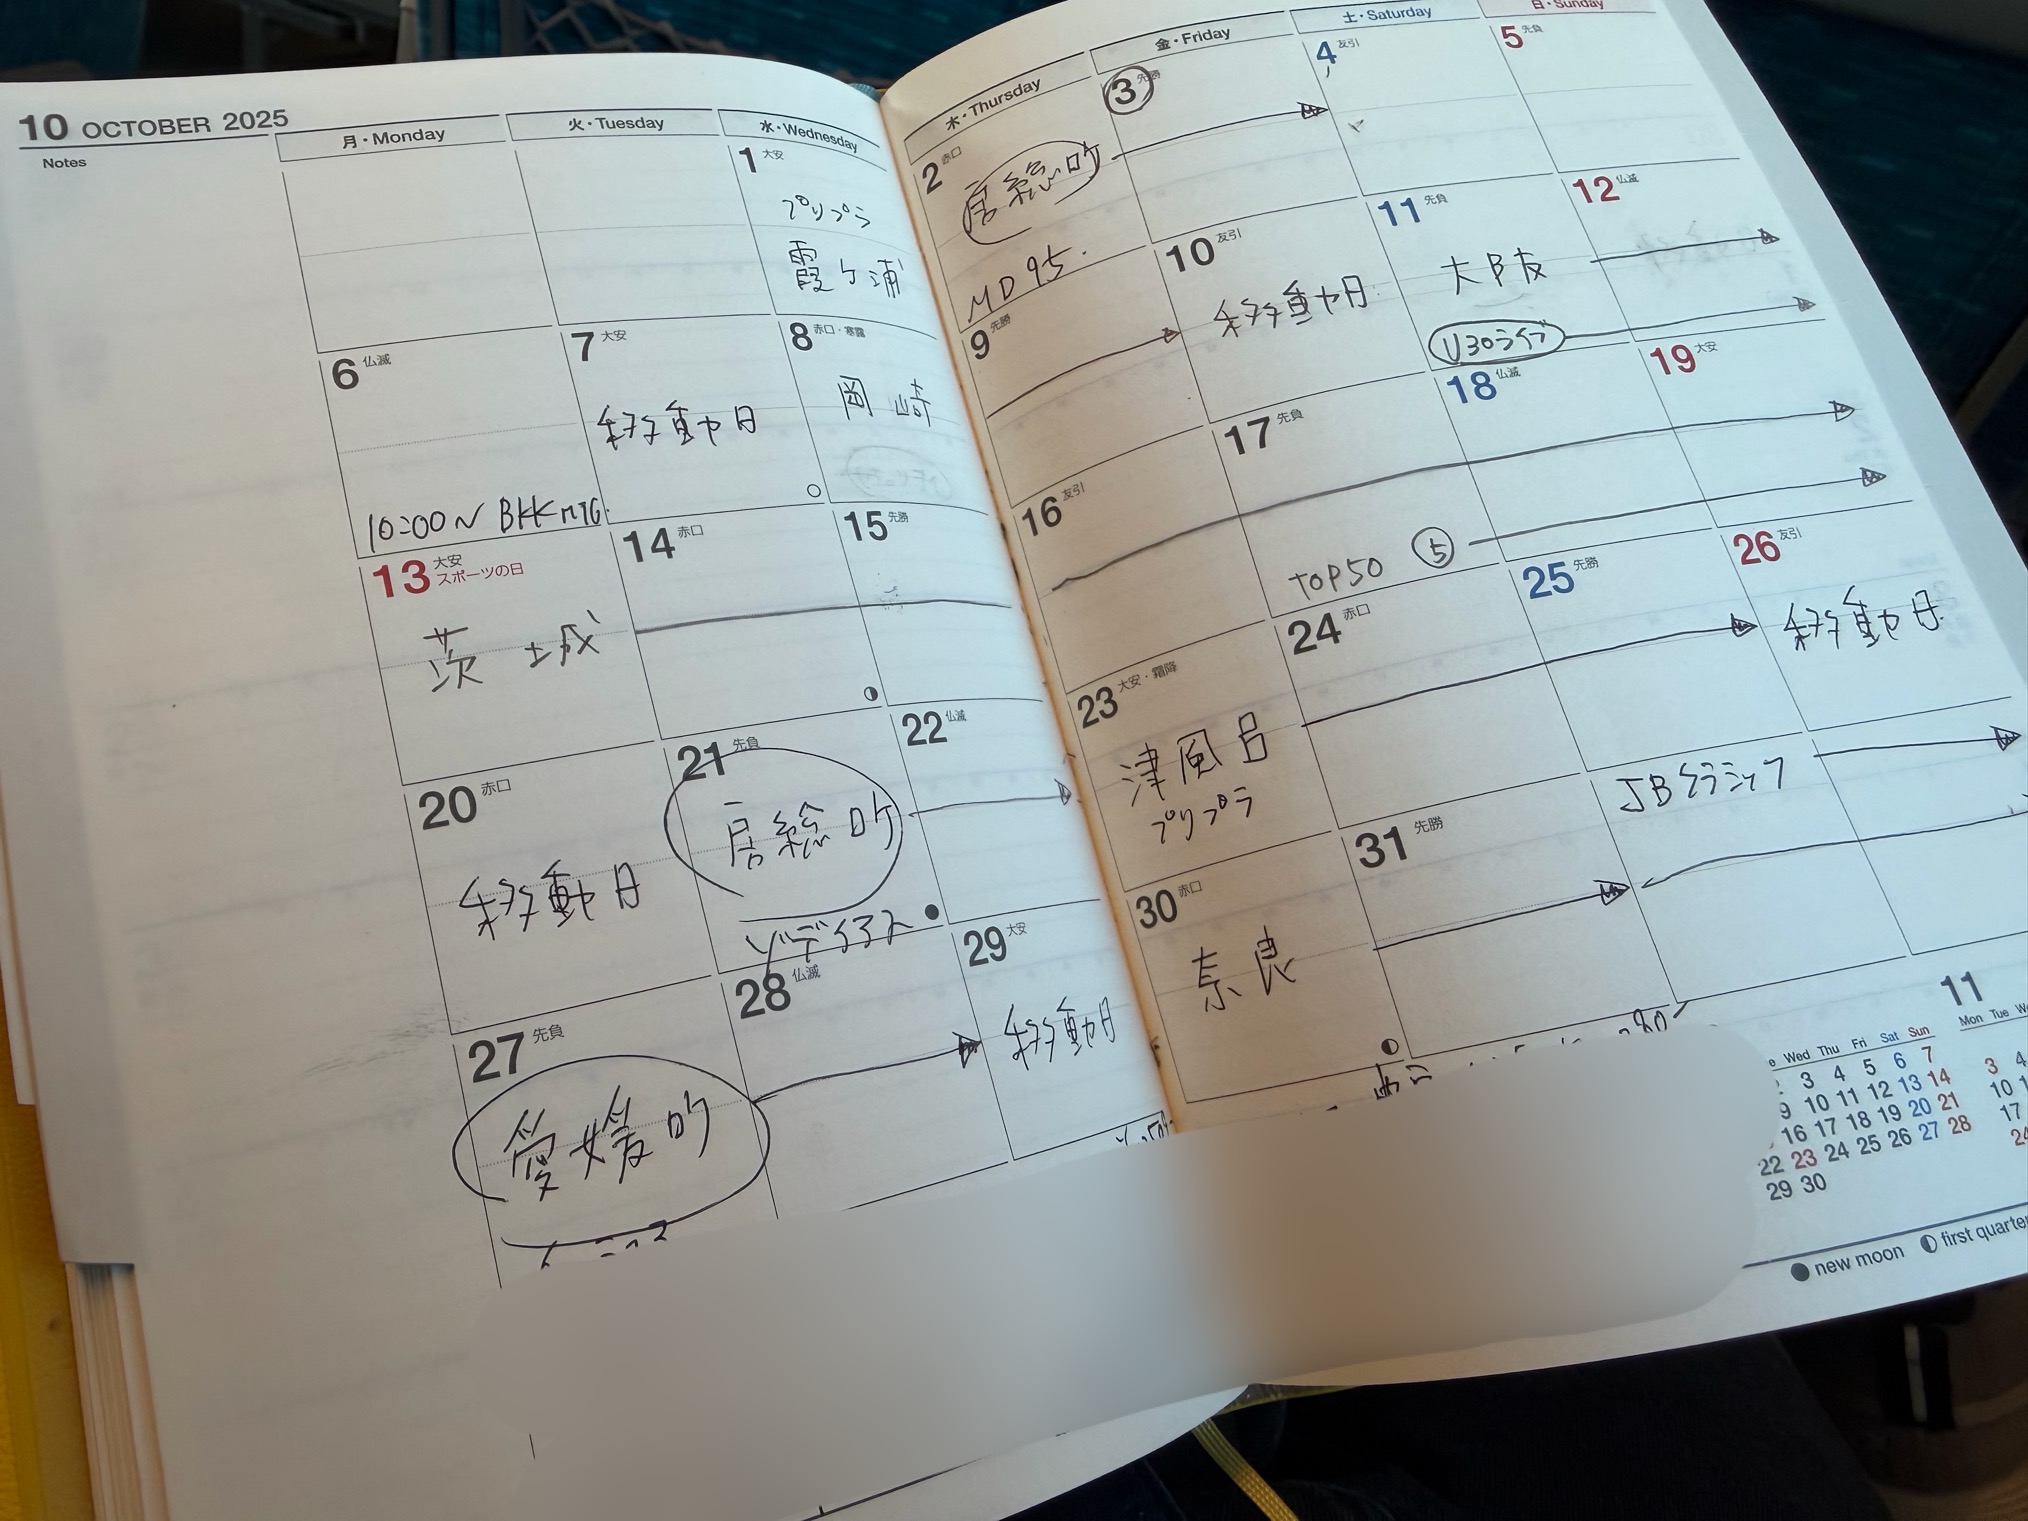 10 OCTOBER 2025
Notes
月・Monday
火・Tuesday
水・Wednesday
木・Thursday
金・Friday
土・Saturday
日・Sunday
1 大安
プリプラ
霞ヶ浦
2 赤口
房総的
MD95.
3 先勝
4 友引
5 先負
6 仏滅
10:00〜 BKK MTG
7 大安
移動日
8 赤口・寒露
岡崎
9 先勝
10 友引
移動日
11 先負
大阪
U30ライブ
12 仏滅
13 大安
スポーツの日
茨城
14 赤口
15 先勝
16 友引
17 先負
TOP50 ⑤
18 仏滅
19 大安
20 赤口
移動日
21 先負
房総的
22 仏滅
23 大安・霜降
津風呂
プリプラ
24 赤口
25 先勝
JBクラシック
26 友引
移動日
27 先負
愛媛的
28 仏滅
29 大安
移動日
30 赤口
奈良
31 先勝
11
Wed Thu Fri Sat Sun
3 4 5 6 7
9 10 11 12 13 14
16 17 18 19 20 21
22 23 24 25 26 27 28
29 30
Mon Tue
3 4
10
17
24
new moon
first quarter